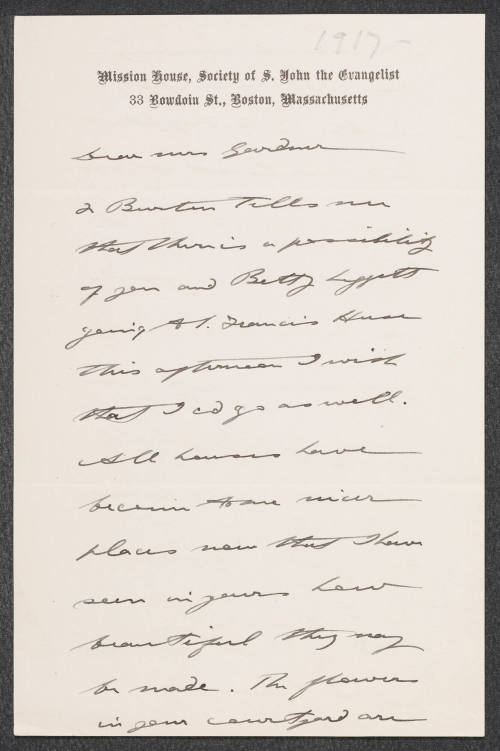 1917-
Mission House, Society of S. John the Evangelist
33 Bowdoin St., Boston, Massachusetts
Dear Mrs Gardner
Fr Burton tells me
that there is a possibility
of you and Betty Liggett
going to St. Francis House
this afternoon I wish
that I cd go as well.
All houses have
become to me nicer
places now that I have
seen in yours how
beautiful they may
be made. The flowers
in your courtyard are